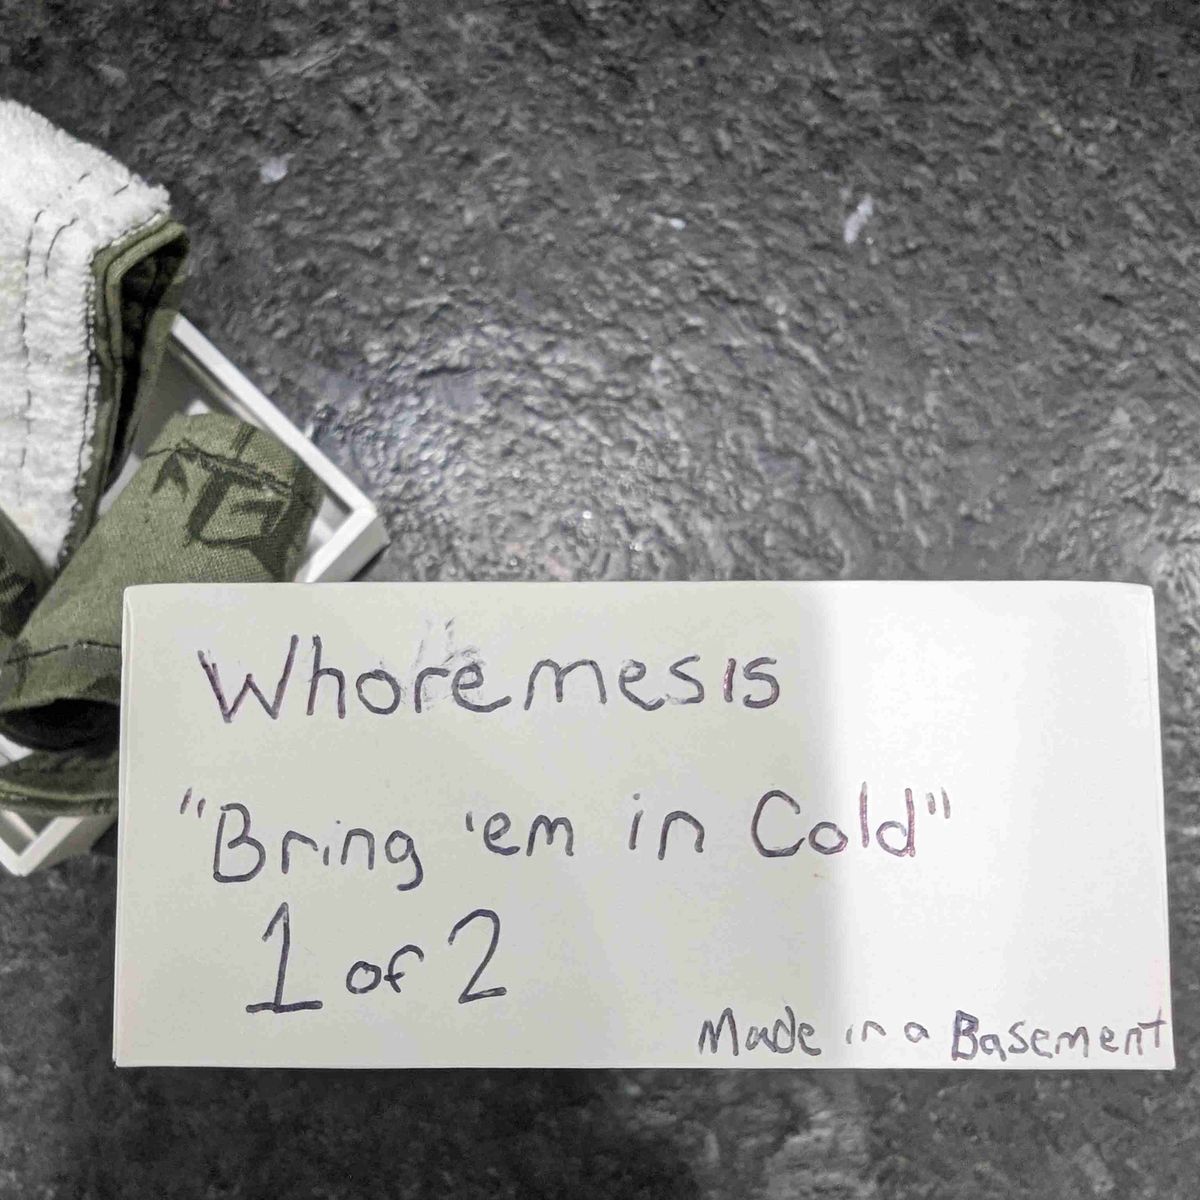 Whoremesis
"Bring 'em in Cold"
1 of 2
Made in a Basement